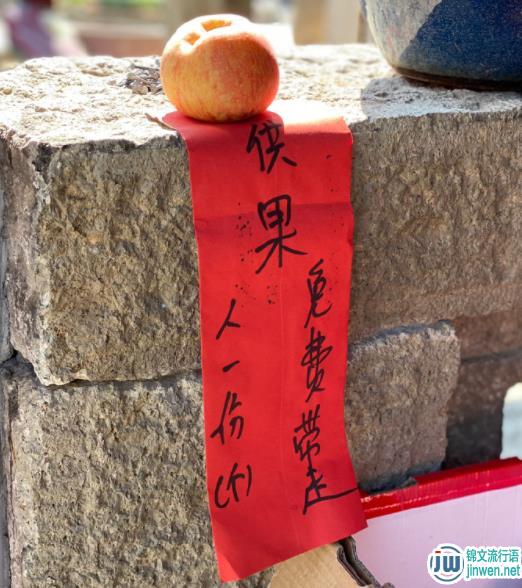 供果
免费带走
人一份(个)
锦文流行语
jinwen.net
JW